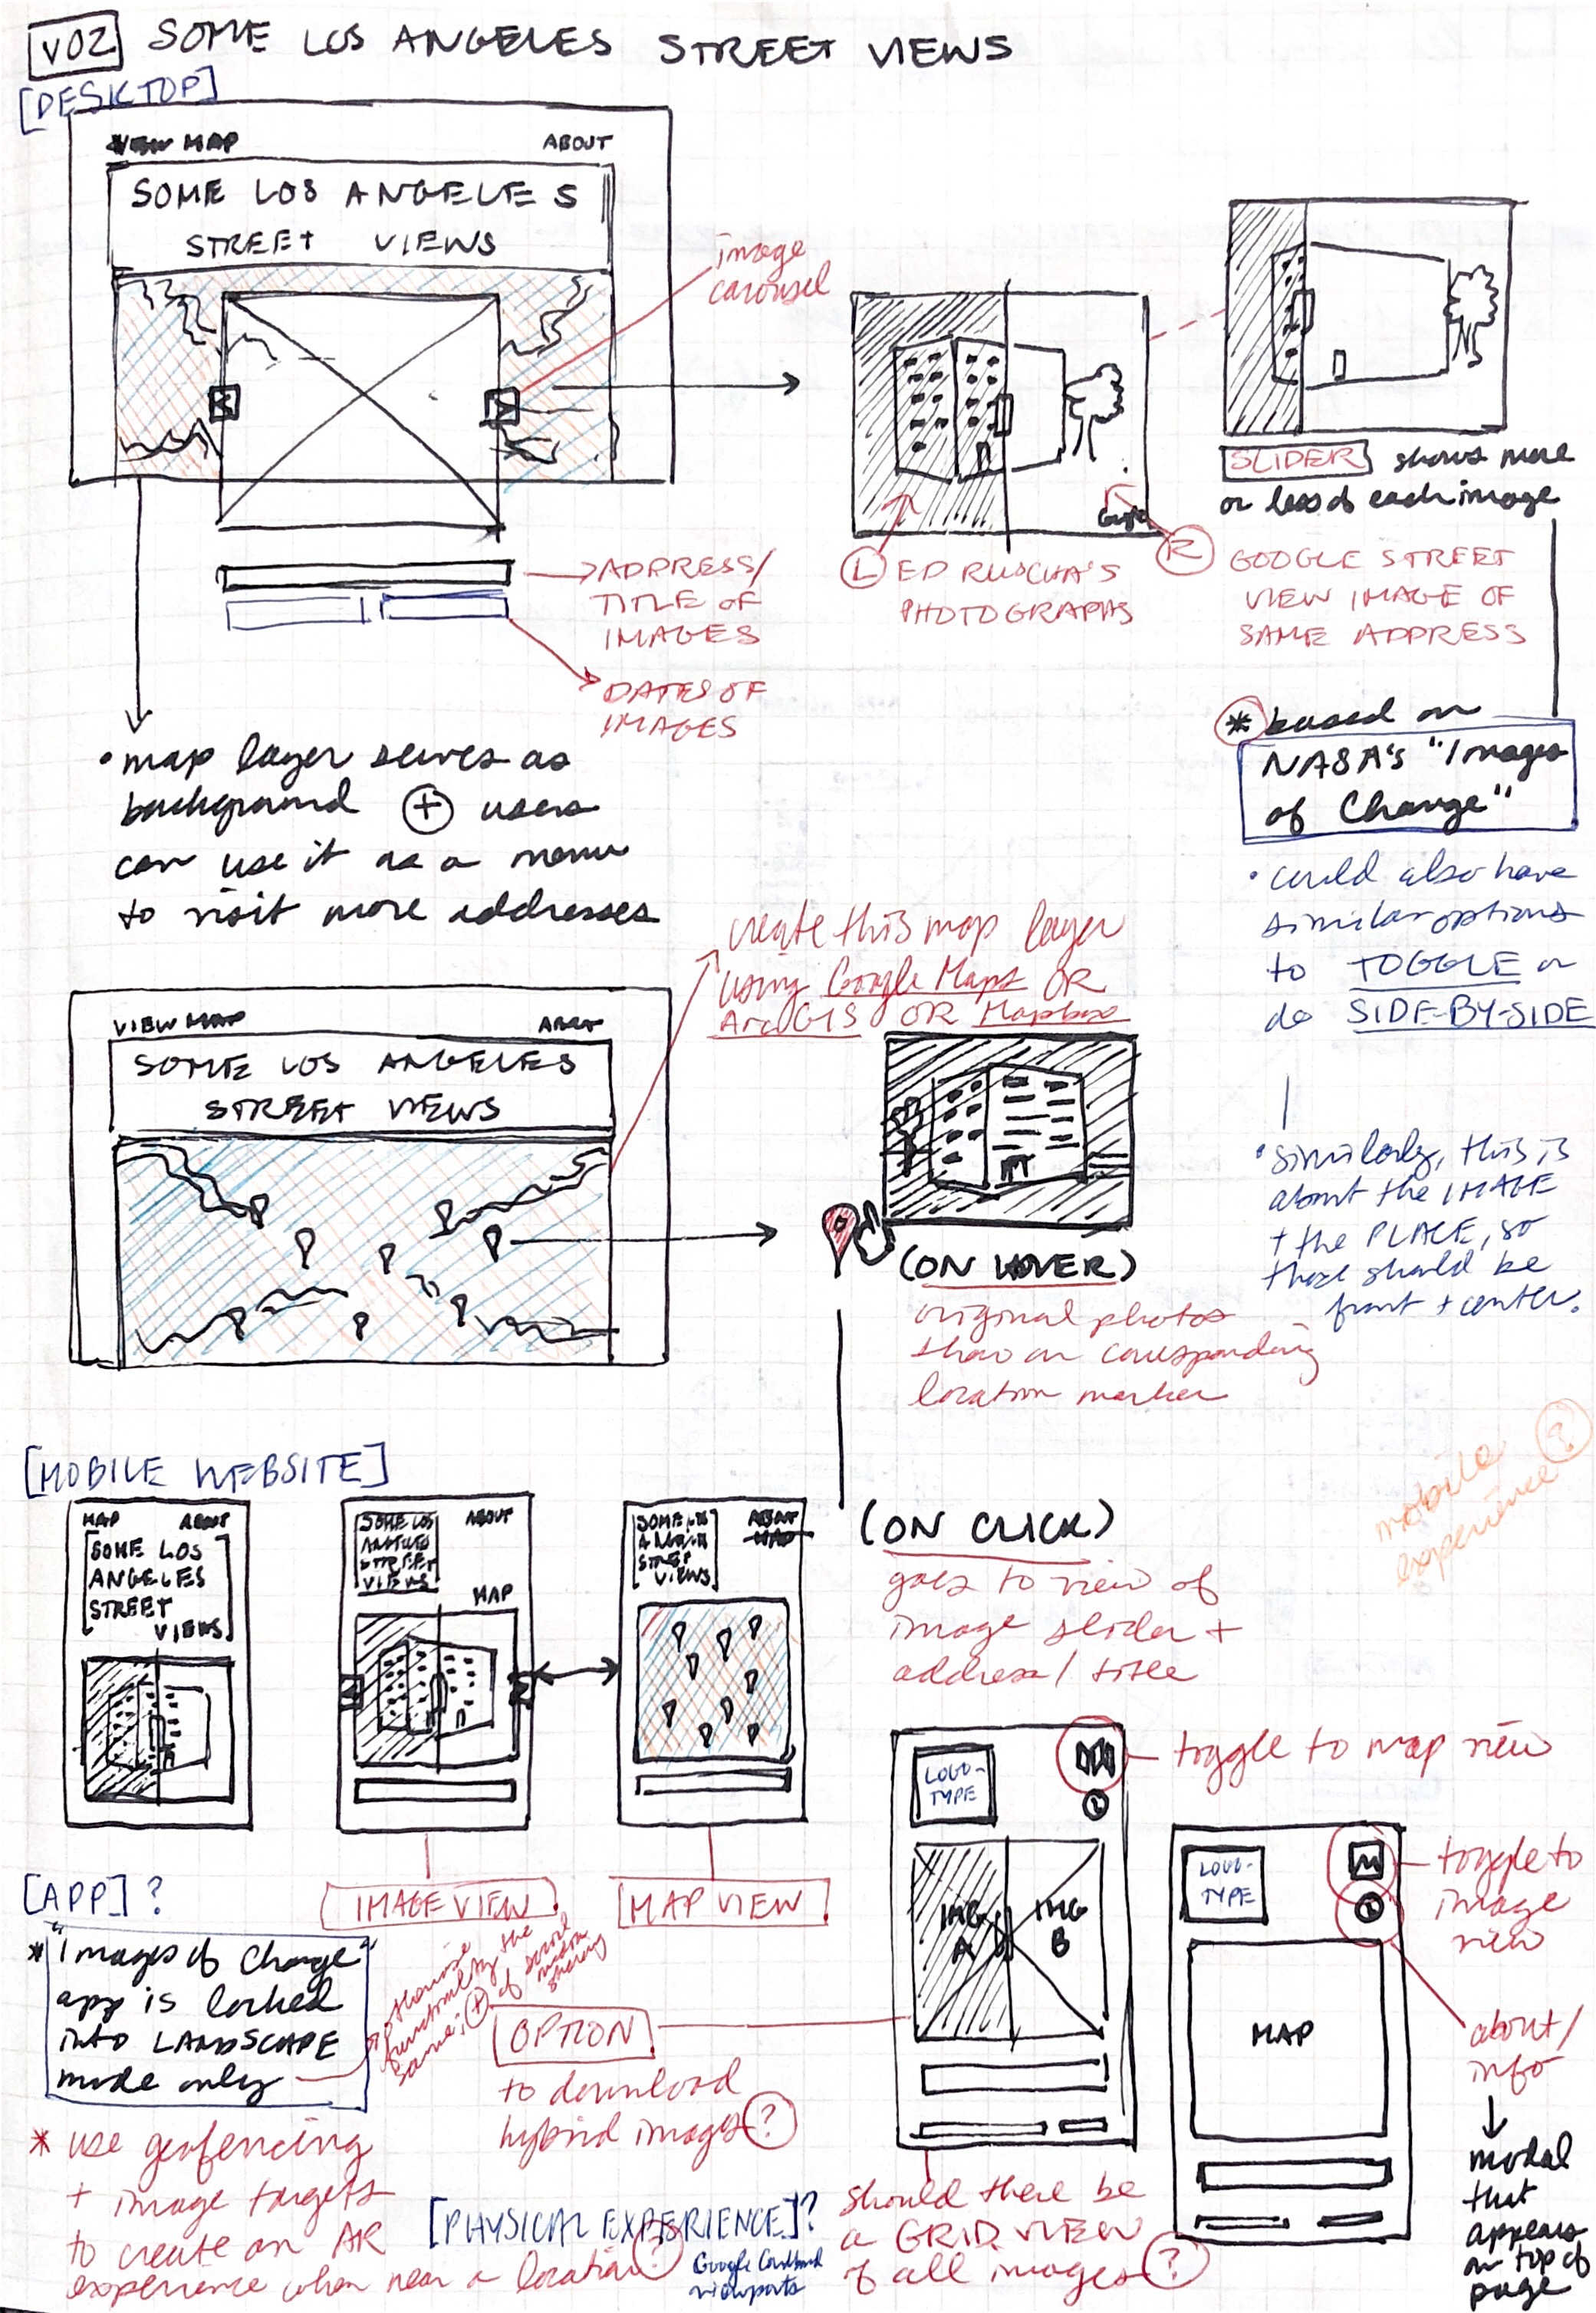 V02 SOME LOS ANGELES STREET VIEWS
[DESKTOP]
VIEW MAP ABOUT
SOME LOS ANGELES
STREET VIEWS
image
carousel
→ ADDRESS/
TITLE OF
IMAGES
DATES OF
IMAGES
Google
(L) ED RUSCHA'S
PHOTOGRAPHS
SLIDER shows more
or less of each image
(R) GOOGLE STREET
VIEW IMAGE OF
SAME ADDRESS
* based on
NASA'S "Images
of Change"
• could also have
similar options
to TOGGLE or
do SIDE-BY-SIDE
• similarly, this is
about the IMAGE
+ the PLACE, so
those should be
front + center.
• map layer serves as
background (+) users
can use it as a menu
to visit more addresses
create this map layer
using Google Maps OR
ArcGIS OR Mapbox
VIEW MAP ABOUT
SOME LOS ANGELES
STREET VIEWS
(ON HOVER)
original photos
show on corresponding
location marker
mobile
experience ?
[MOBILE WEBSITE]
MAP ABOUT
SOME LOS
ANGELES
STREET
VIEWS
SOME LOS
ANGELES
STREET
VIEWS
ABOUT
MAP
SOME LOS
ANGELES
STREET
VIEWS
ABOUT
MAP
IMAGE VIEW
MAP VIEW
(ON CLICK)
goes to view of
image slider +
address / title
LOGO-
TYPE
i
toggle to map view
IMG
A
IMG
B
LOGO-
TYPE
i
MAP
toggle to
image
view
about/
info
↓
modal
that
appears
on top of
page
[APP] ?
* "Images of Change"
app is locked
into LANDSCAPE
mode only
otherwise
functionality the
same; (+) of social
media
sharing
OPTION
to download
hybrid images ?
* use geofencing
+ image targets
to create an AR
experience when near a location ?
[PHYSICAL EXPERIENCE] ?
Google Cardboard
viewports
should there be
a GRID VIEW
of all images ?